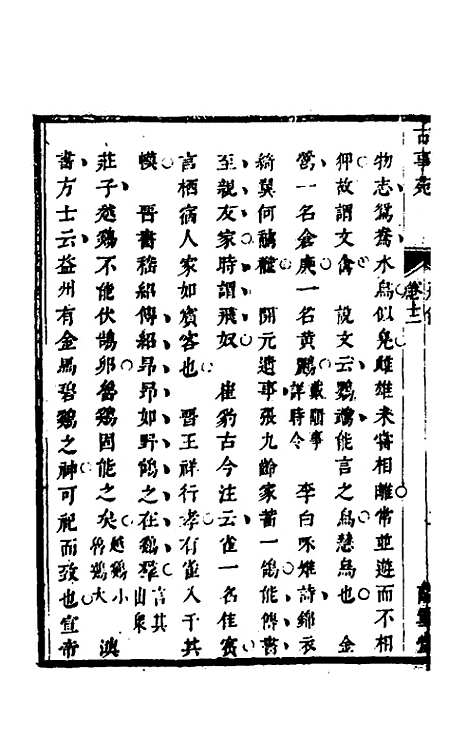 古事苑
卷十二
物志鴛鴦水鳥似鳧雌雄未嘗相離常並遊而不相
狎故謂文禽　說文云鸚鵡能言之鳥慧鳥也　金
鶯一名倉庚一名黃鸝戴顒事詳時令　李白咏雉詩錦衣
綺翼何離褷　開元遺事張九齡家蓄一鴿能傳書
至親友家時謂飛奴　崔豹古今注云雀一名佳賓
言栖宿人家如賓客也　晉王祥行孝有雀入于其
幙　晉書嵇紹傳紹昂昂如野鶴之在鷄羣言其出衆
莊子越鷄不能伏鵠卵魯鷄固能之矣越鷄小魯鷄大　漢
書方士云益州有金馬碧鷄之神可祀而致也宣帝